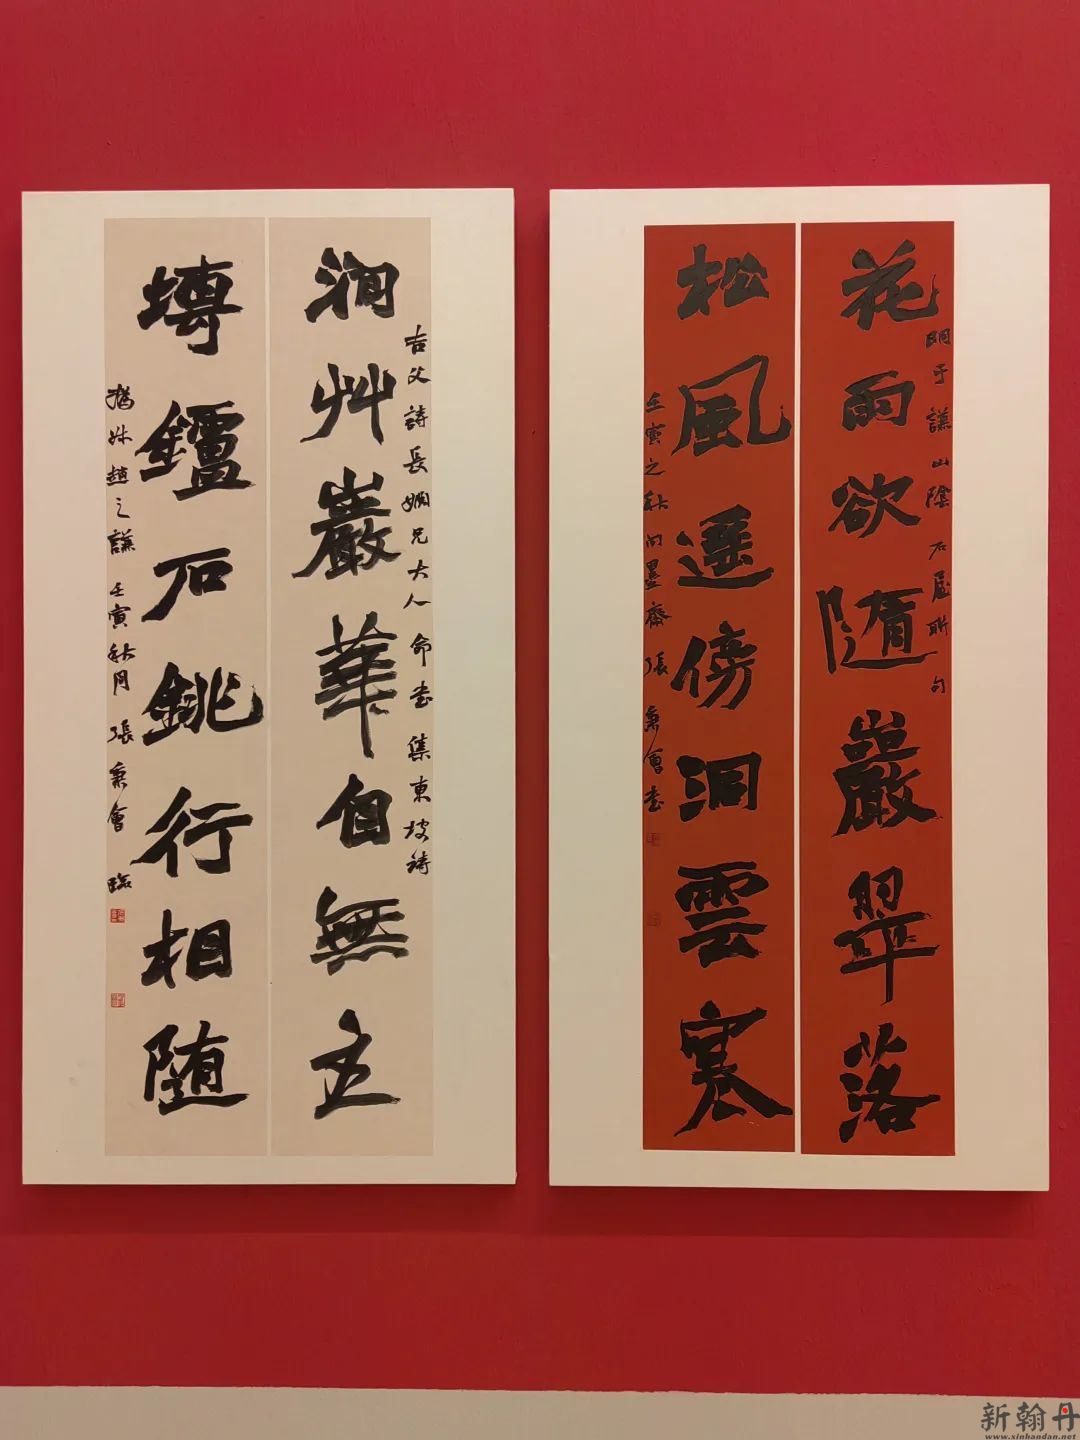 花雨欲隨巖翠落
明于謙山陰石屋聯句
松風遥傍洞雲寒
壬寅之秋問墨齋張秉會書
澗艸巖華自無主
吉父詩長姻兄大人命書集東坡詩
塼鑪石銚行相随
撝叔趙之謙壬寅秋月張秉會臨
新翰丹
www.xinhandan.net